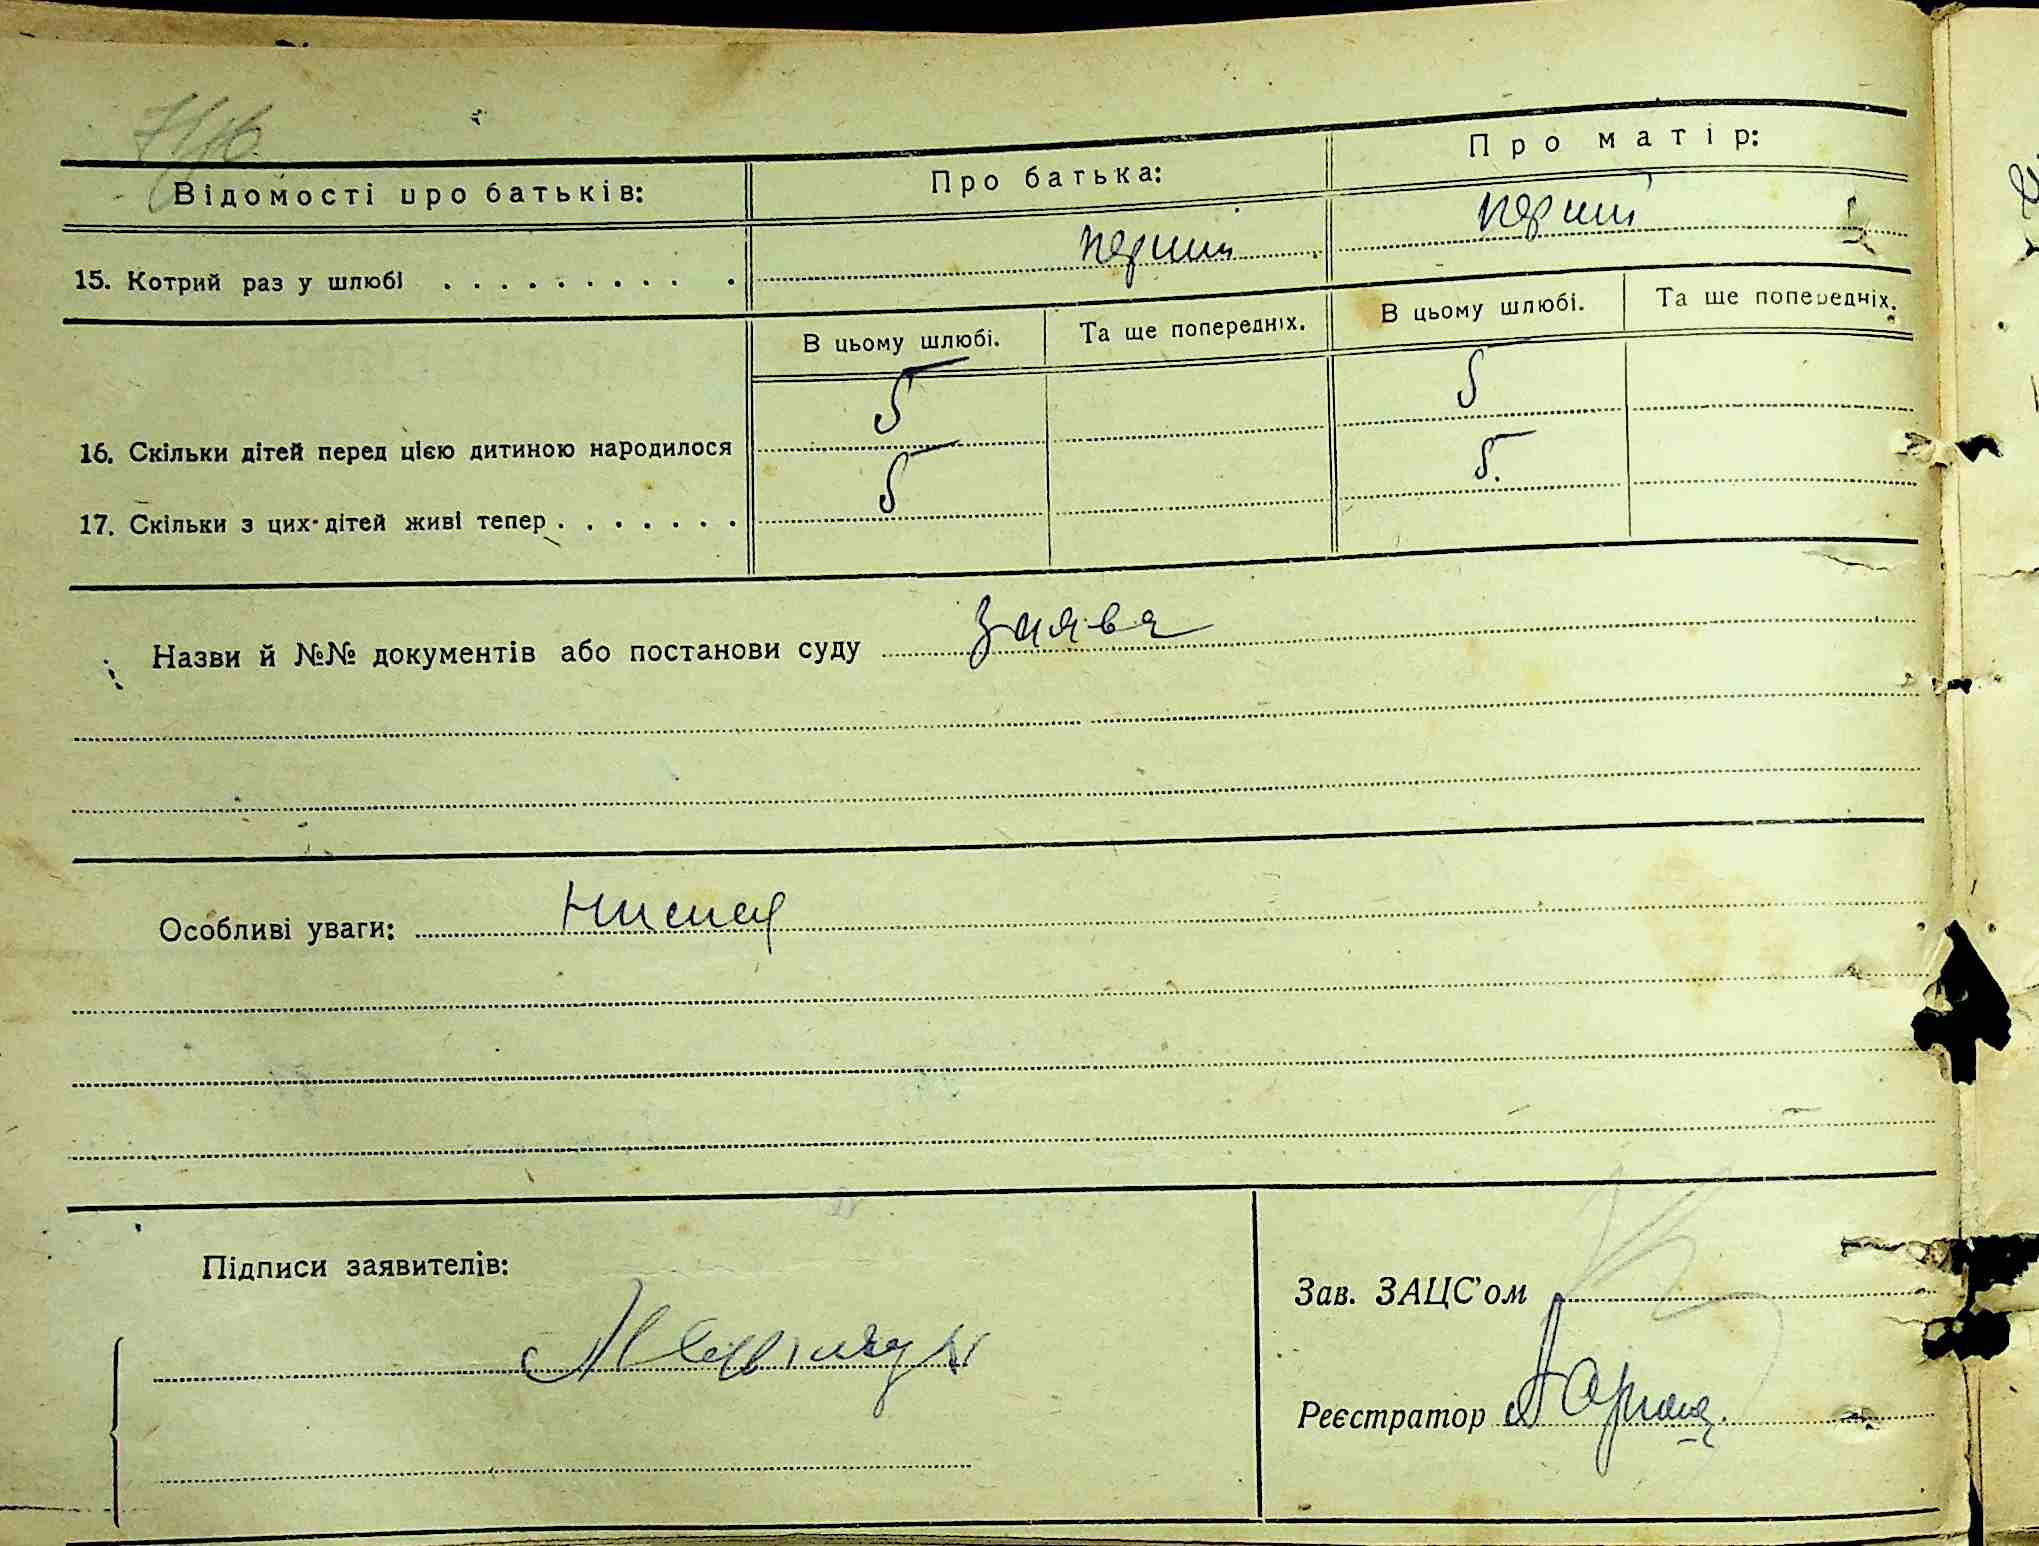 Відомості про батьків:
Про батька:
Про матір:
15. Котрий раз у шлюбі . . . . . . . . . .
перший
перший
В цьому шлюбі.
Та ще попередніх.
В цьому шлюбі.
Та ще попередніх.
16. Скільки дітей перед цією дитиною народилося
5
5
17. Скільки з цих дітей живі тепер . . . . . . .
5
5.
Назви й №№ документів або постанови суду заява
Особливі уваги:
Підписи заявителів:
Зав. ЗАЦС'ом
Реєстратор